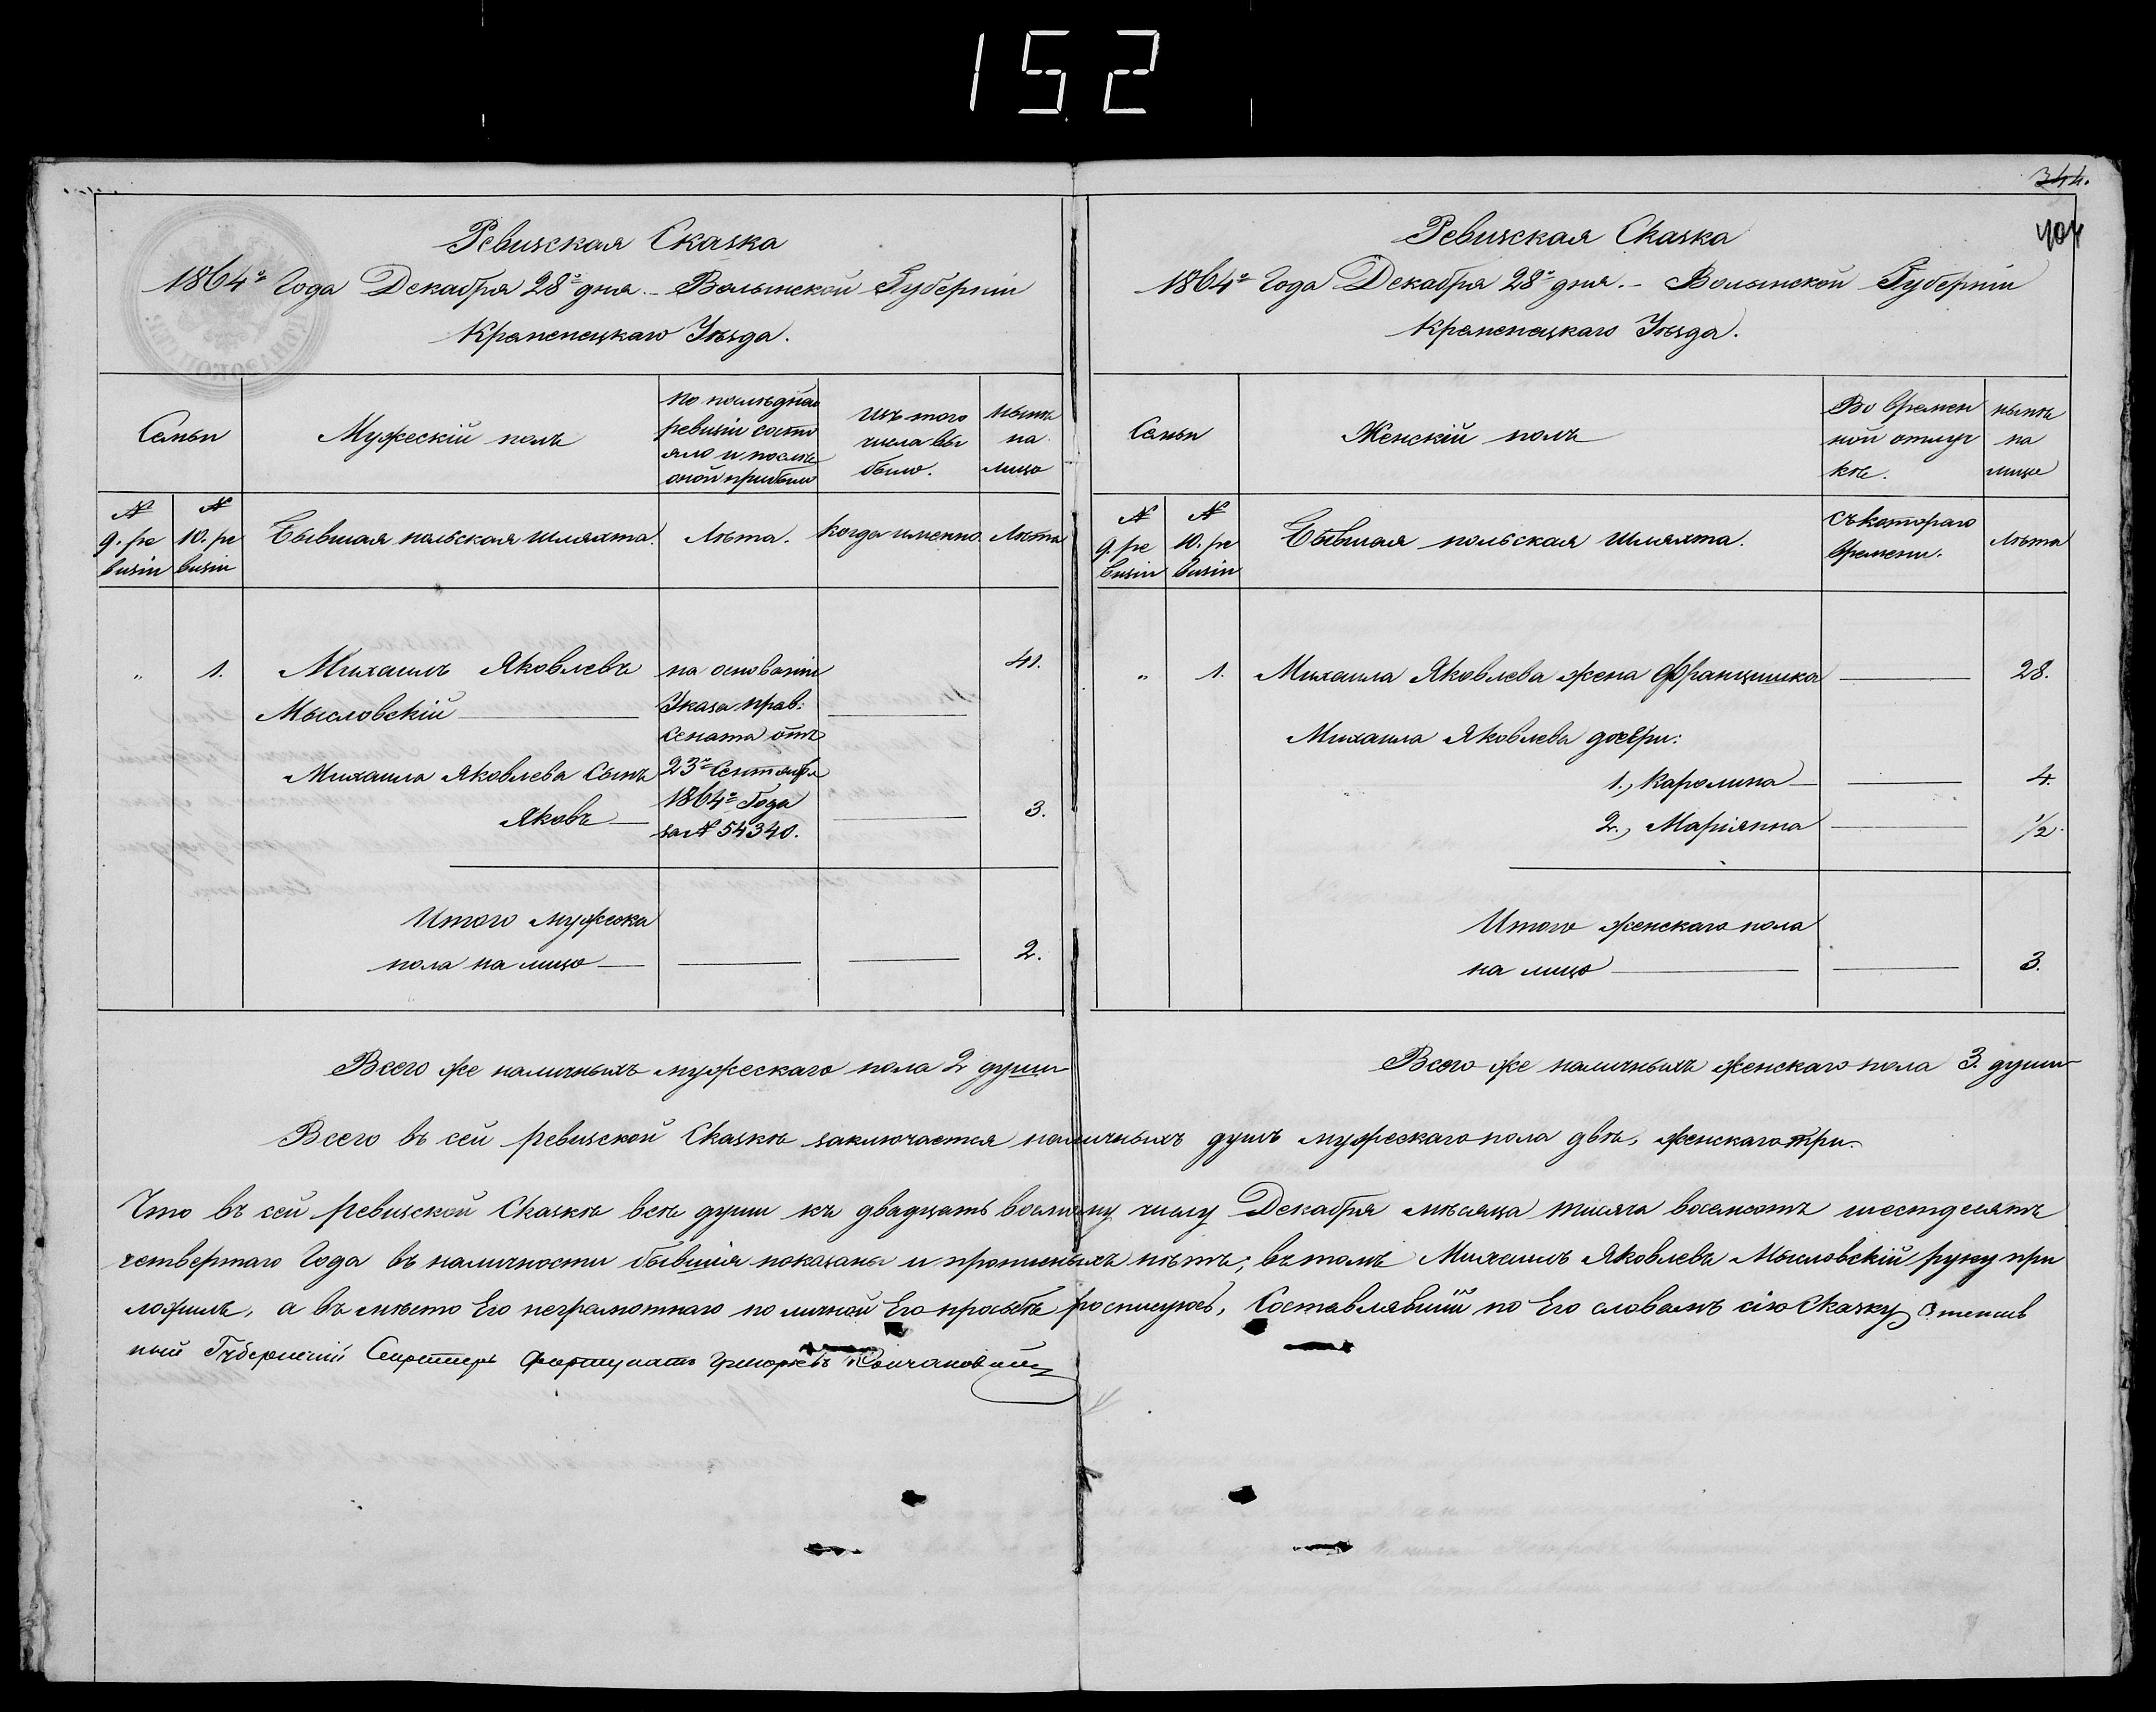 152
344.
404
Ревизская Сказка
1864го Года Декабря 28го дня. – Волынской Губерніи
Кременецкаго Уѣзда.
Семьи
Мужескій полъ
по послѣдней ревизіи состояло и послѣ оной прибыло
Изъ того числа выбыло.
Нынѣ на лицо
№ 9. ревизіи
№ 10. ревизіи
Бывшая польская шляхта.
Лѣта.
Когда именно
Лѣта
„ 1. Михаилъ Яковлевъ на основаніи 41.
Мысловскій — Указа прав: —
Сената отъ
Михаила Яковлева Сынъ 23го Сентября
1864го Года
Яковъ — за № 54340. — 3.
Итого мужеска
пола на лицо — — — 2.
Всего же наличныхъ мужескаго пола 2 души
Ревизская Сказка
1864го Года Декабря 28го дня. – Волынской Губерніи
Кременецкаго Уѣзда.
Семьи
Женскій полъ
Во временной отлучкѣ.
нынѣ на лице
№ 9. ревизіи
№ 10. ревизіи
Бывшая польская шляхта.
Съ котораго времени.
Лѣта
„ 1. Михаила Яковлева жена Францишка — 28.
Михаила Яковлева дочери:
1., Каролина — — 4.
2., Маріянна — 1/2.
Итого женскаго пола
на лицо — — 3.
Всего же наличныхъ женскаго пола 3. души
Всего въ сей ревизской Сказкѣ заключается наличныхъ душъ мужескаго пола двѣ, женскаго три.
Что въ сей ревизской Сказкѣ всѣ души къ двадцать восьмому числу Декабря мѣсяца тысяча восемсотъ шестдесятъ
четвертаго Года въ наличности бывшія показаны и прописныхъ нѣтъ, въ томъ Михаилъ Яковлевъ Мысловскій руку при
ложилъ, а въ мѣсто Его неграмотнаго по личной Его просьбѣ росписуюсь, Составлявшій по Его словамъ сію Сказку Отстав
ной Губернский Секретарь Фортунатъ Григорьевъ